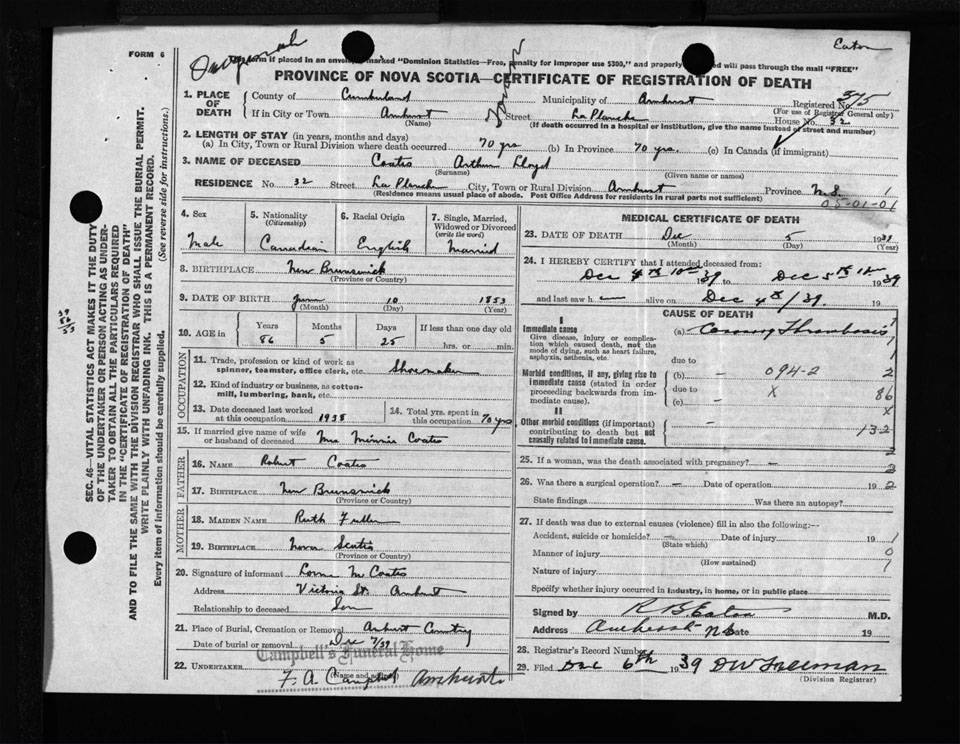 FORM 6
Eaton
form if placed in an envelope marked "Dominion Statistics—Free, Penalty for improper use $300," and properly ed will pass through the mail "FREE"
PROVINCE OF NOVA SCOTIA—CERTIFICATE OF REGISTRATION OF DEATH
1. PLACE OF DEATH
County of Cumberland Municipality of Amherst Registered No. 375
(For use of Registrar General only)
If in City or Town Amherst (Name) Street La Planche House No. 32
(If death occurred in a hospital or institution, give the name instead of street and number)
2. LENGTH OF STAY (in years, months and days)
(a) In City, Town or Rural Division where death occurred 70 yrs (b) In Province 70 yrs. (c) In Canada (if immigrant)
3. NAME OF DECEASED Coates Arthur Lloyd
(Surname) (Given name or names)
RESIDENCE No. 32 Street La Planche City, Town or Rural Division Amherst Province N.S. 1
(Residence means usual place of abode. Post Office Address for residents in rural parts not sufficient)
05-01-01
4. Sex Male
5. Nationality (Citizenship) Canadian
6. Racial Origin English
7. Single, Married, Widowed or Divorced (write the word) Married
8. BIRTHPLACE New Brunswick
(Province or Country)
9. DATE OF BIRTH June 10 1853
(Month) (Day) (Year)
10. AGE in Years 86 Months 5 Days 25 If less than one day old hrs. or min.
OCCUPATION
11. Trade, profession or kind of work as spinner, teamster, office clerk, etc. Shoemaker
12. Kind of industry or business, as cotton-mill, lumbering, bank, etc.
13. Date deceased last worked at this occupation 1938
14. Total yrs. spent in this occupation 70 yrs
15. If married give name of wife or husband of deceased Mrs Minnie Coates
FATHER
16. NAME Robert Coates
17. BIRTHPLACE New Brunswick
(Province or Country)
MOTHER
18. MAIDEN NAME Ruth Fuller
19. BIRTHPLACE Nova Scotia
(Province or Country)
20. Signature of informant Lorne M Coates
Address Victoria St. Amherst
Relationship to deceased Son
21. Place of Burial, Cremation or Removal
Date of burial or removal Dec 7/39
Campbell's Funeral Home
22. UNDERTAKER F. A. Campbell Amherst
(Name and address)
MEDICAL CERTIFICATE OF DEATH
23. DATE OF DEATH Dec 5 1939
(Month) (Day) (Year)
24. I HEREBY CERTIFY that I attended deceased from:
Dec 4th 1939 to Dec 5th 1939
and last saw h alive on Dec 4th/39 19
CAUSE OF DEATH
I
Immediate cause (a) Coronary Thrombosis
Give disease, injury or complication which caused death, not the mode of dying, such as heart failure, asphyxia, asthenia, etc.
due to
Morbid conditions, if any, giving rise to immediate cause (stated in order proceeding backwards from immediate cause). (b) – 094-2 2
due to X 86
(c) –
X
II
Other morbid conditions (if important) contributing to death but not causally related to immediate cause. –
132
25. If a woman, was the death associated with pregnancy? –
26. Was there a surgical operation? – Date of operation 19 2
State findings Was there an autopsy?
27. If death was due to external causes (violence) fill in also the following:—
Accident, suicide or homicide? – Date of injury 19 1
(State which)
Manner of injury 0
(How sustained)
Nature of injury
Specify whether injury occurred in industry, in home, or in public place
Signed by R B. Eaton M.D.
Address Amherst N.S. Date 19
28. Registrar's Record Number
29. Filed Dec 6th 1939 D W Freeman
(Division Registrar)
SEC. 46—VITAL STATISTICS ACT MAKES IT THE DUTY OF THE UNDERTAKER OR PERSON ACTING AS UNDERTAKER TO OBTAIN ALL THE PARTICULARS REQUIRED IN THE "CERTIFICATE OF REGISTRATION OF DEATH"
AND TO FILE THE SAME WITH THE DIVISION REGISTRAR WHO SHALL ISSUE THE BURIAL PERMIT.
WRITE PLAINLY WITH UNFADING INK. THIS IS A PERMANENT RECORD.
Every item of information should be carefully supplied. (See reverse side for instructions.)
39
86
53